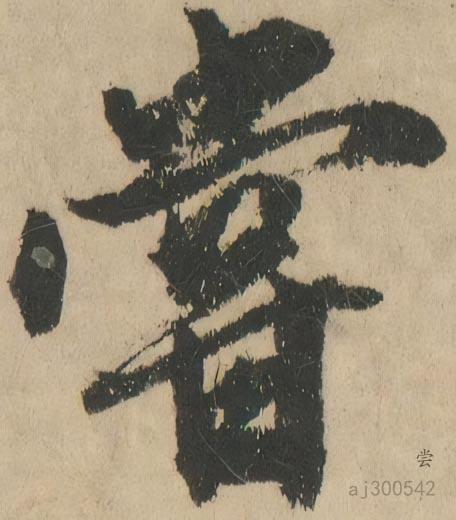 嘗
尝
aj300542